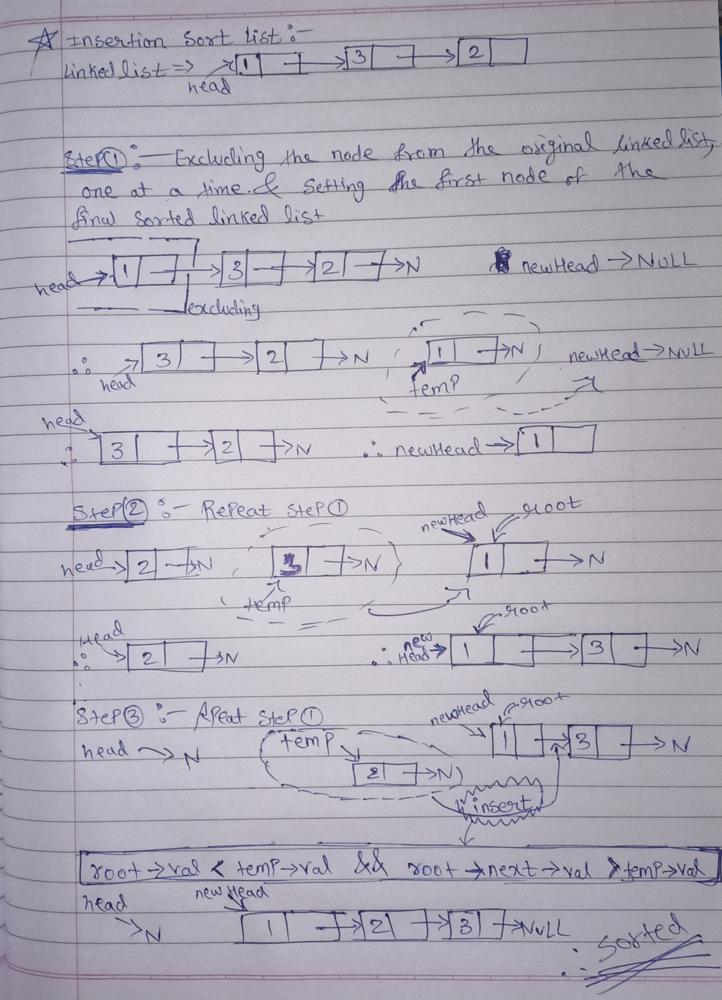 ☆ Insertion Sort List :-
Linked list => 1 → 3 → 2
head
Step ① :- Excluding the node from the original linked list,
one at a time. & Setting the first node of the
final sorted linked list
head → 1 → 3 → 2 → N newHead → NULL
excluding
∴ 3 → 2 → N 1 → N newHead → NULL
head temp
head
∴ 3 → 2 → N ∴ newHead → 1
Step ② :- Repeat Step ①
newHead root
head → 2 → N 3 → N 1 → N
temp
root
Head new
∴ 2 → N ∴ Head → 1 → 3 → N
Step ③ :- Repeat Step ① newHead root
head → N temp 1 → 3 → N
2 → N
insert
root → val < temp → val && root → next → val > temp → val
head new Head
→ N 1 → 2 → 3 → NULL
∴ Sorted